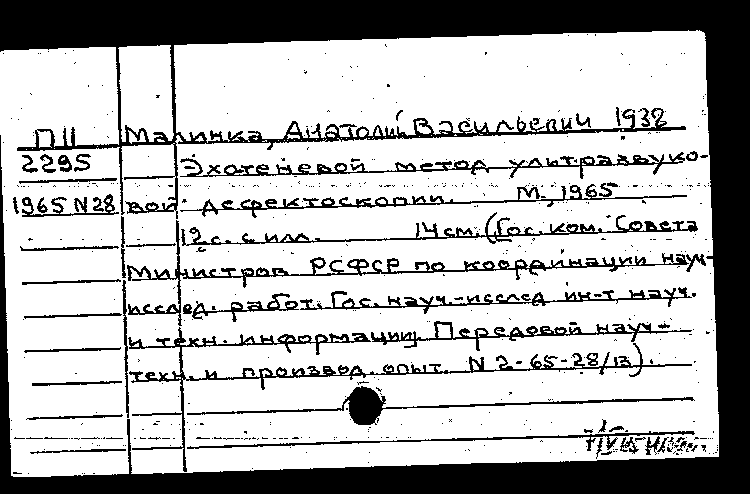 П11 Малинка, Анатолий Васильевич 1932
2295 Эхотеневой метод ультразвуко-
1965 N28 вой дефектоскопии. М., 1965
12с. с илл. 14 см. (Гос. ком. Совета
Министров РСФСР по координации науч-
исслед. работ. Гос. науч.-исслед ин-т науч.
и техн. информации. Передовой науч-
техн. и производ. опыт. N 2-65-28/13).